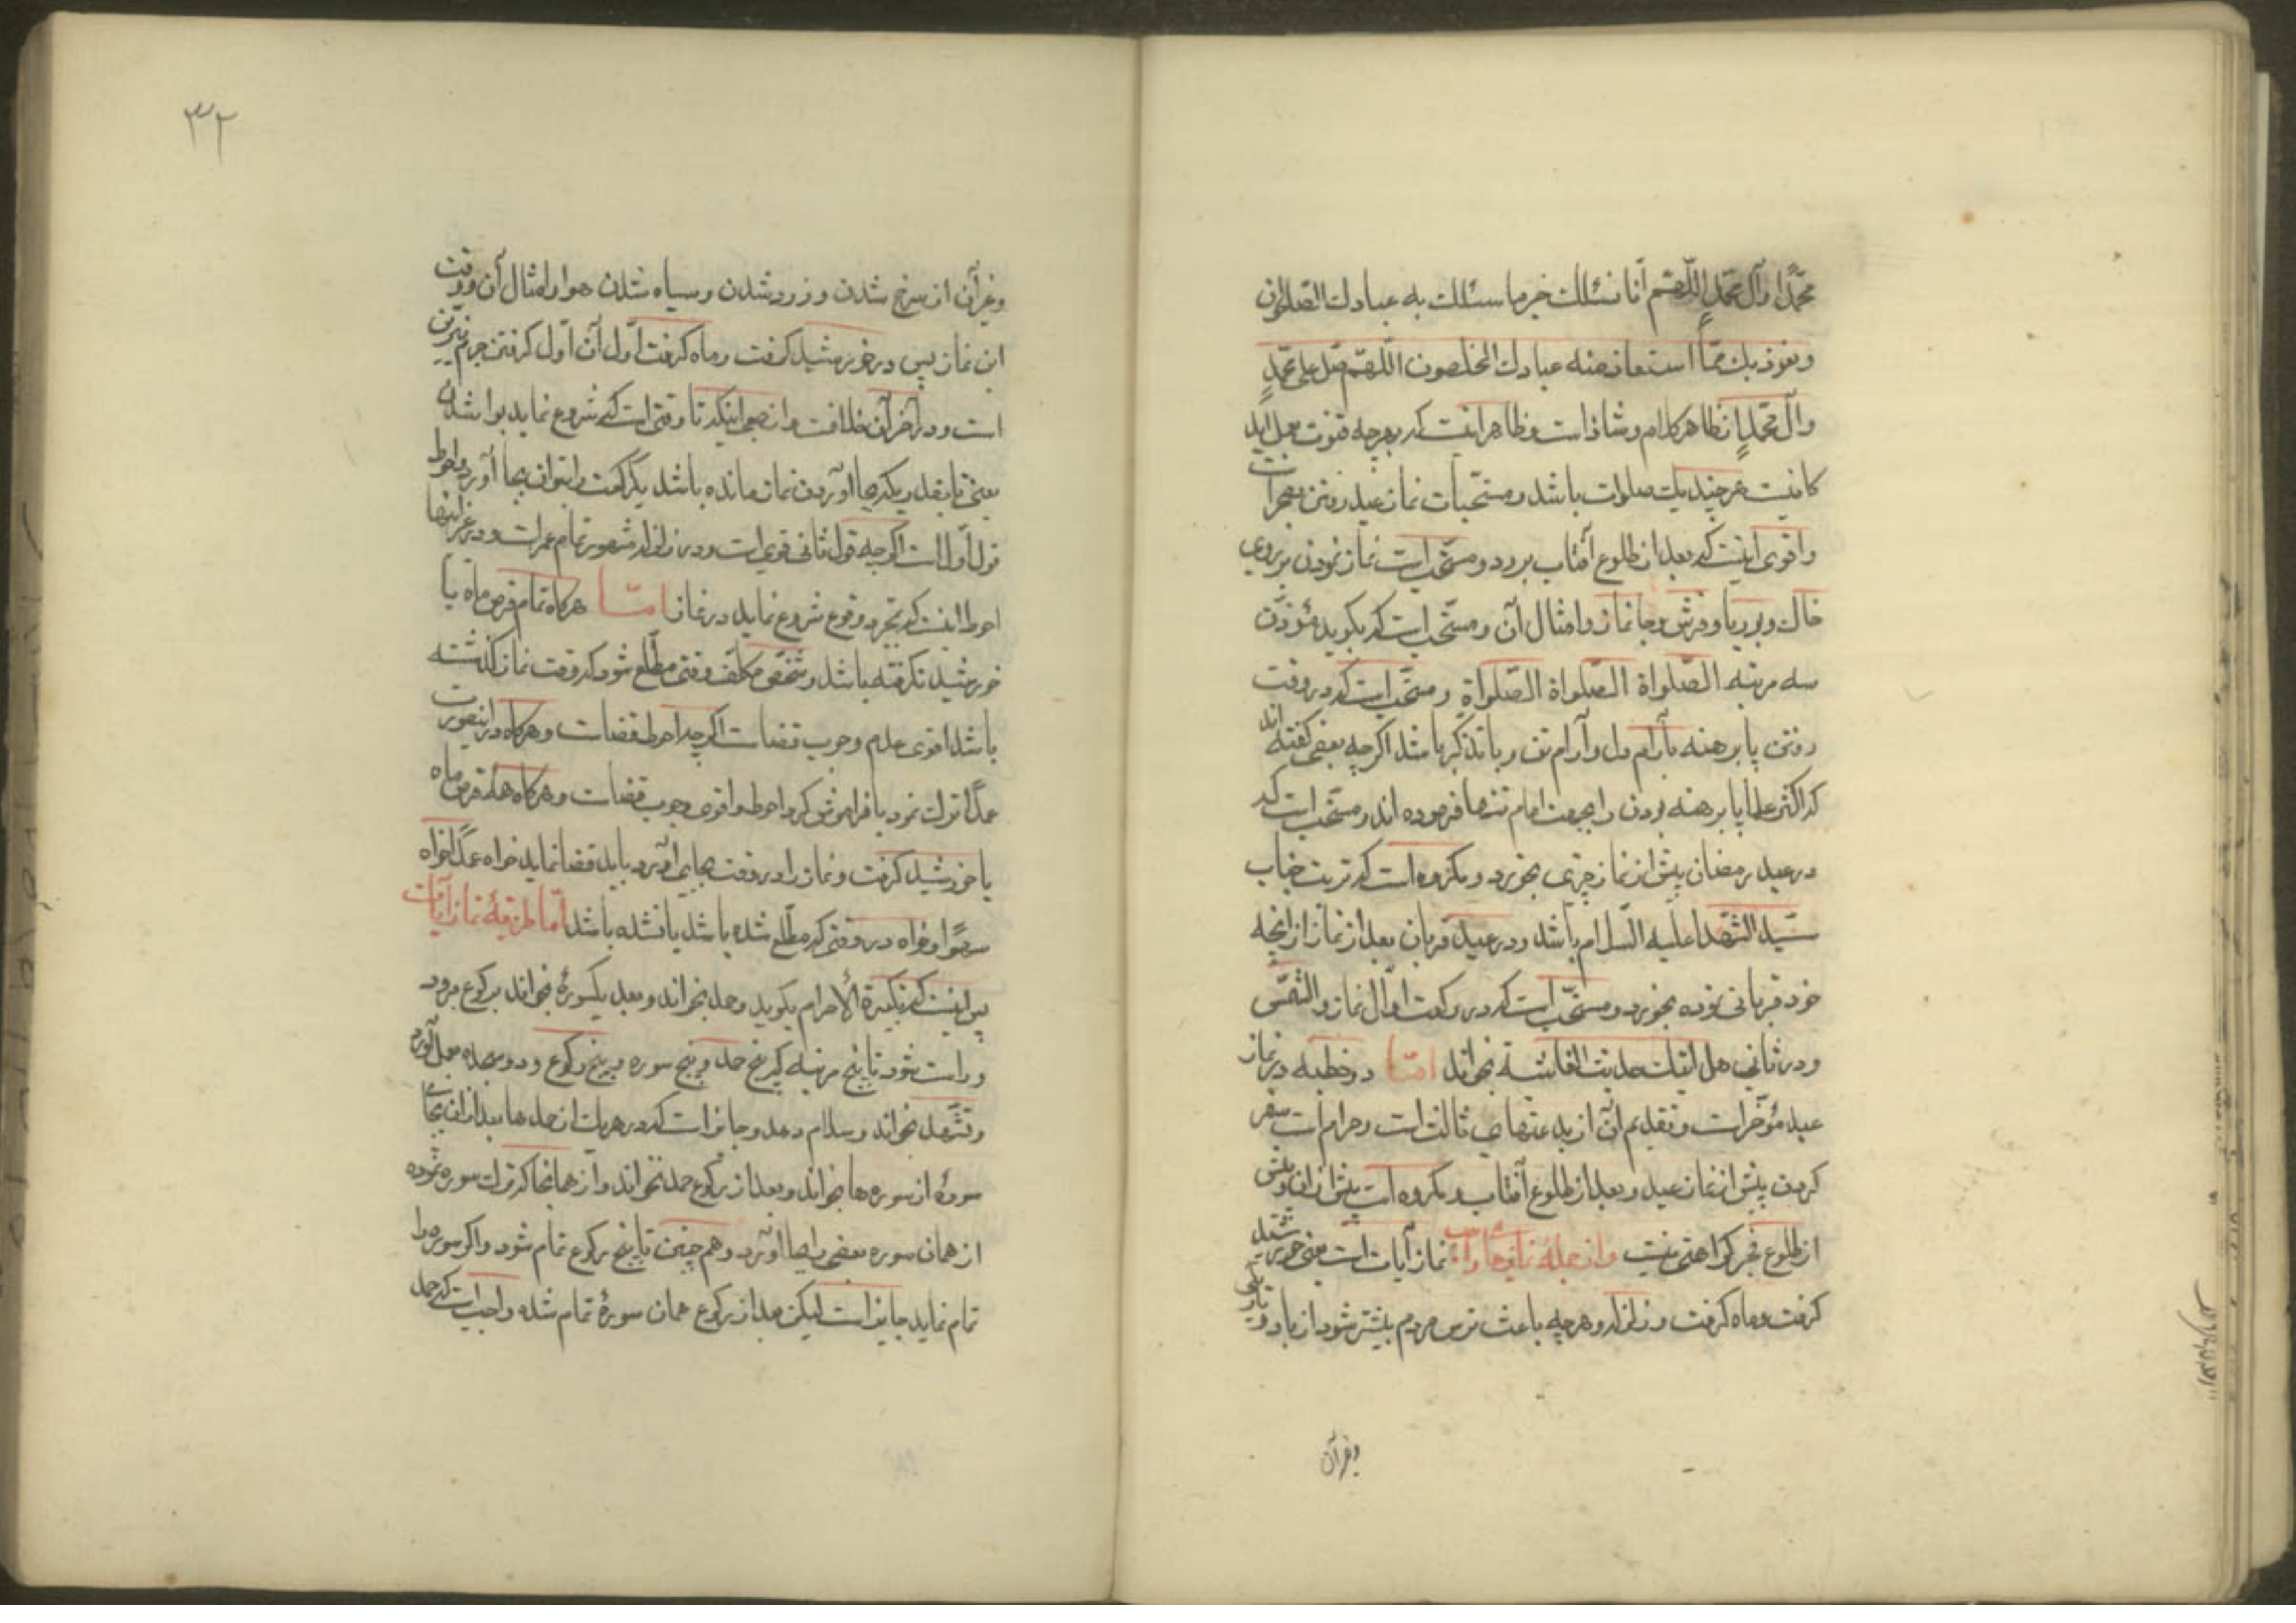 محمّدًا وآل محمّدٍ اللّهمّ انّا نسئلك خیر ما سئلك به عبادك الصّالحون
ونعوذ بك ممّا استعاذ منه عبادك المخلصون اللّهمّ صلّ علی محمّدٍ
وآل محمّدٍ از ظاهر کلام و شاذ است و ظاهر اینست که بهرچه قنوت بعمل اید
کافیست هرچند یك صلوات باشد و مستحبّات نماز عید رفتن بصحرا است
واقوی اینست که بعد از طلوع آفتاب برود و مستحب است نماز نمودن بر روی
خاك و بوریا و فرش و جانماز و امثال آن و مستحب است که بکوید مؤذّن
سه مرتبه الصّلواة الصّلواة الصّلواة و مستحب است که در وقت
رفتن پا برهنه بآرام دل و آرام تن و با تذکر باشد اکرچه بعضی کفته اند
که اکثر علما پا برهنه بودن را بجهت امام تنها فرموده اند و مستحب است که
در عید رمضان پیش از نماز چیزی بخورد و مکروه است که تربت جناب
سیّد الشّهدا علیه السّلام باشد و در عید قربان بعد از نماز از آنچه
خود قربانی نموده بخورد و مستحب است که در رکعت اوّل نماز والشّمس
و در ثانی هل اتیك حدیث الغاشیة بخواند امّا دو خطبه در نماز
عید مؤخّر است و تقدیم آن از بدعتهای ثالث است و حرام است سفر
کردن پیش از نماز عید و بعد از طلوع آفتاب و مکروه است پیش از آن و پیش
از طلوع فجر کراهتی نیست واز جملهٔ نمازهای واجب نماز آیات است یعنی خورشید
کرفت و ماه کرفت و زلزله و هرچه باعث ترس مردم بیشتر شود از باد و تاریکی
وغیر آن
۳۲
وغیر آن از سرخ شدن و زرد شدن و سیاه شدن هوا و امثال آن و وقت
این نماز پس در خورشید کرفت و ماه کرفت اوّل آن اوّل کرفتن جرم نیّرین
است و در آخر آن خلافست و ارجح اینکه تا وقتی است که شروع نماید بوا شدن
یعنی تا بقدر یکه بجا آوردن نماز مانده باشد یکرکعت را بتوان بجا آورد و احوط
قول اوّل است اکرچه قول ثانی قوی است و در زلزله مشهور تمام عمر است و در غیر اینها
احوط اینست که بمجرد وقوع شروع نماید در نماز امّا هرکاه تمام قرص ماه یا
خورشید نکرفته باشد و شخص مکلّف وقتی مطّلع شود که وقت نماز کذشته
باشد اقوی عدم وجوب قضاست اکرچه احوط قضاست و هرکاه در اینصورت
عمدًا ترك نمود یا فراموش کرد احوط و اقوی وجوب قضاست و هرکاه همهٔ قرص ماه
یا خورشید کرفت و نماز را در وقت بجای نیاورد باید قضا نماید خواه عمدًا خواه
سهوًا و خواه در وقتی که مطّلع شده باشد یا نشده باشد امّا طریقهٔ نماز آیات
پس اینست که تکبیرة الاحرام بکوید و حمد بخواند و بعد یکسورهٔ بخواند برکوع برود
و راست شود تا پنج مرتبه که پنج حمد و پنج سوره و پنج رکوع و دو سجده بعمل آورد
و تشهّد بخواند و سلام دهد و جایز است که در هر یك از حمدها بعد از آن بجای
سورهٔ از سوره‌ها بخواند و بعد از رکوع حمد نخواند و از همانجا که ترك سوره نموده
از همان سوره بعضی را بجا آورد و همچنین تا پنج رکوع تمام شود و اکر سوره را
تمام نماید جایز است لیکن بعد از رکوع همان سورهٔ تمام شده واجب است که حمد